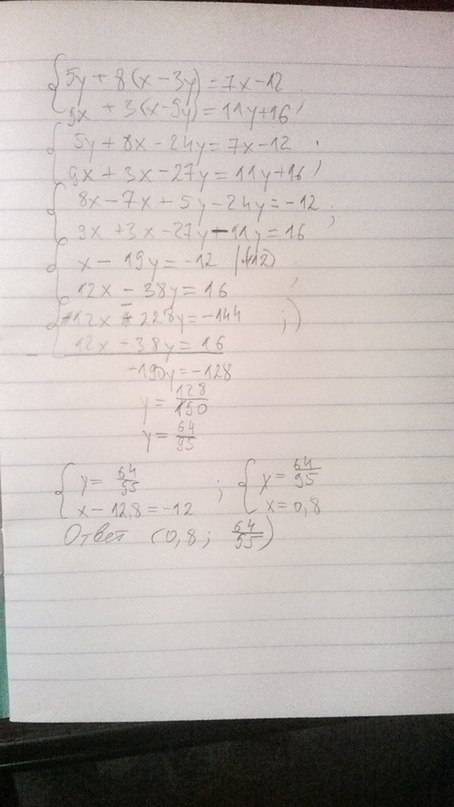 5y + 8(x - 3y) = 7x - 12
9x + 3(x - 9y) = 11y + 16
5y + 8x - 24y = 7x - 12
9x + 3x - 27y = 11y + 16
8x - 7x + 5y - 24y = -12 ;
9x + 3x - 27y - 11y = 16
x - 19y = -12 | (·12)
12x - 38y = 16
12x - 228y = -144 ;)
- 12x - 38y = 16
-190y = -128
y = 128/190
y = 64/95
{ y = 64/95 ; { y = 64/95
x - 12,8 = -12 x = 0,8
Ответ (0,8 ; 64/95)